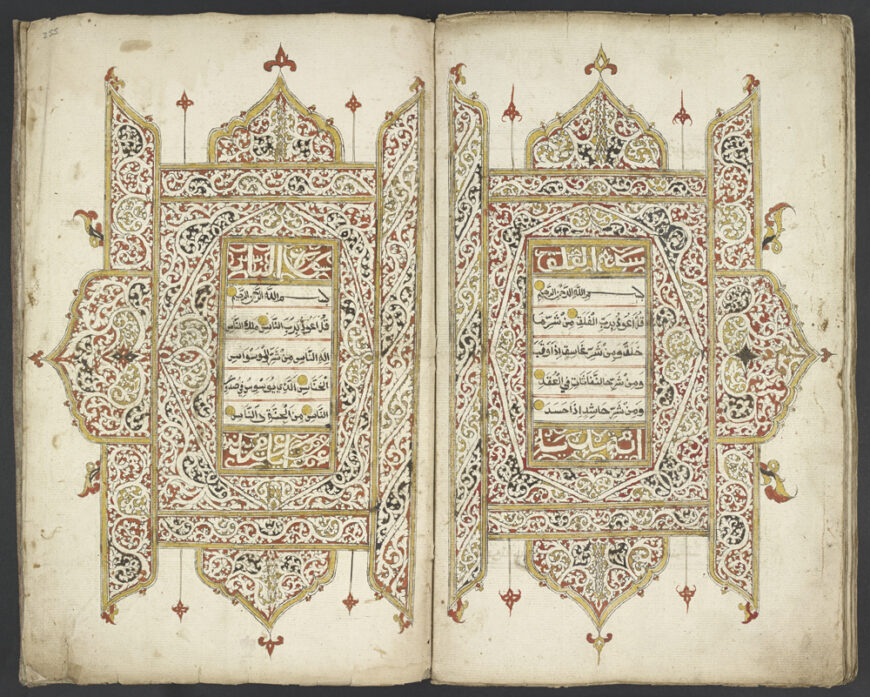 سورة الفلق
بسم الله الرحمن الرحيم
قل اعوذ برب الفلق من شر ما
خلق ومن شر غاسق اذا وقب
ومن شر النفاثات في العقد
ومن شر حاسد اذا حسد
سورة الناس
بسم الله الرحمن الرحيم
قل اعوذ برب الناس ملك الناس
اله الناس من شر الوسواس
الخناس الذي يوسوس في صدور
الناس من الجنة والناس